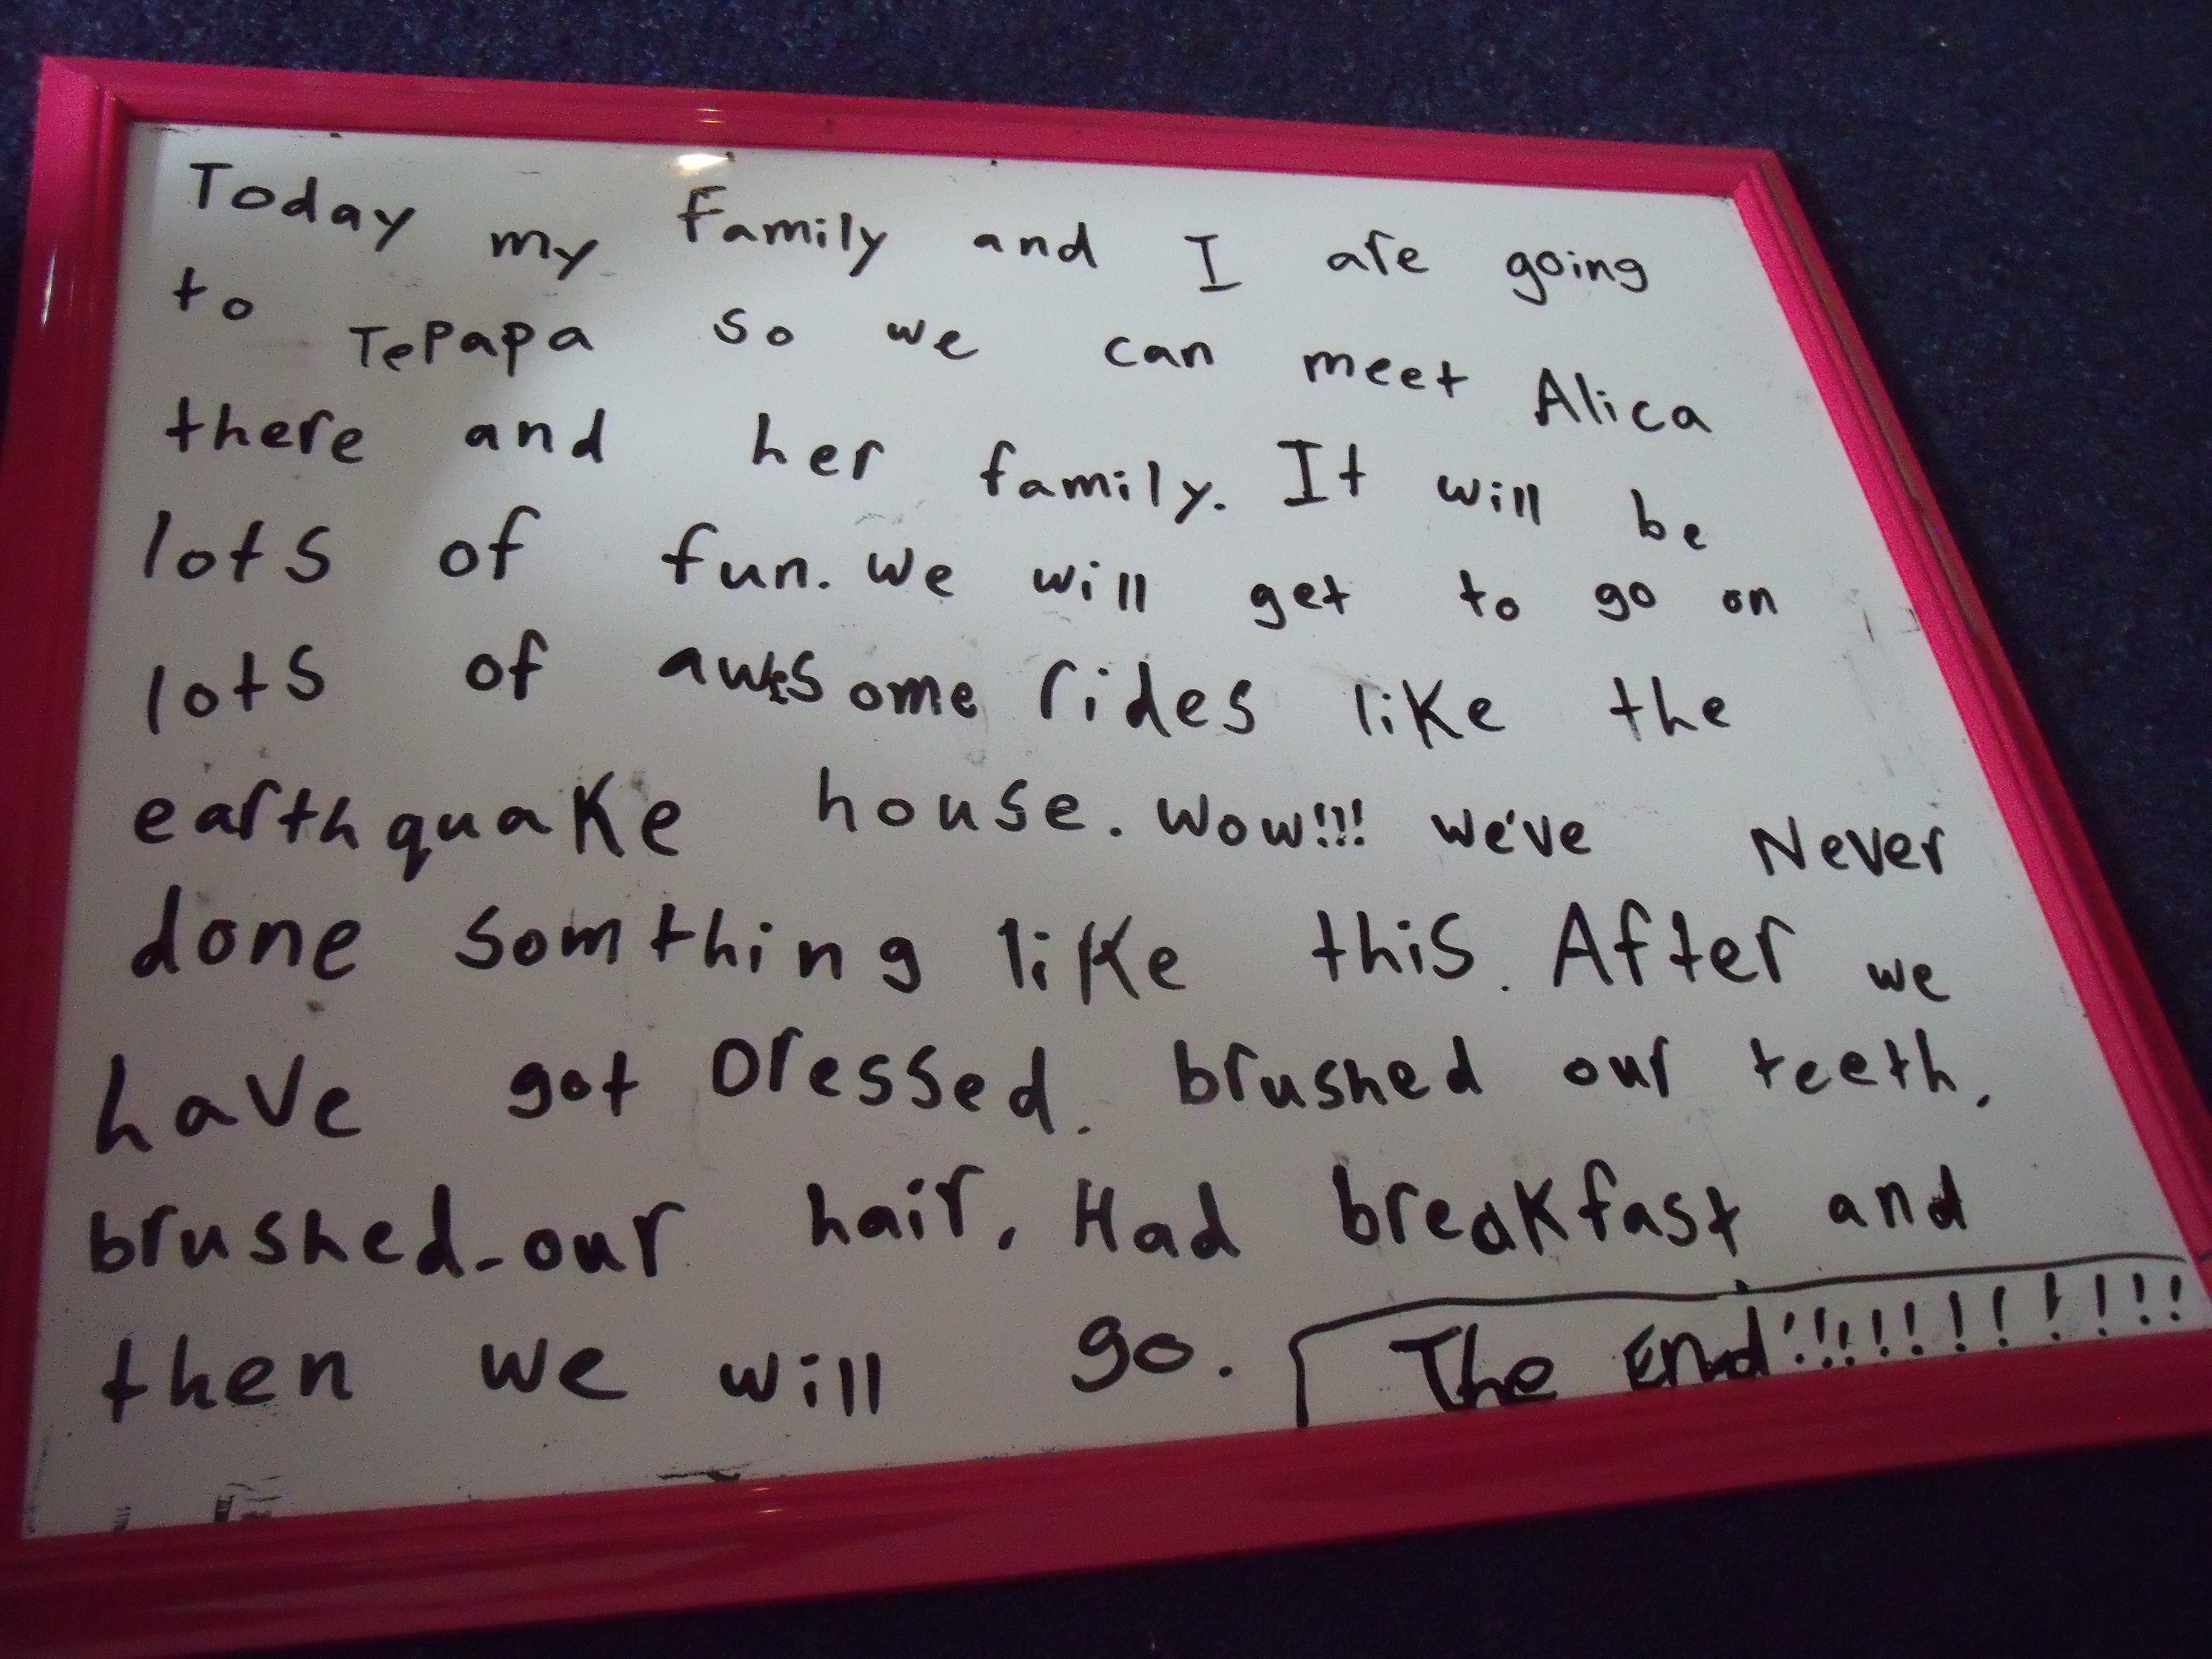 Today my Family and I are going
to TePapa so we can meet Alica
there and her family. It will be
lots of fun. we will get to go on
lots of awesome rides like the
earthquake house. Wow!!! we've Never
done somthing like this. After we
have got Dressed. brushed our teeth,
brushed-our hair, Had breakfast and
then we will go. The End!!!!!!!!!!!!!